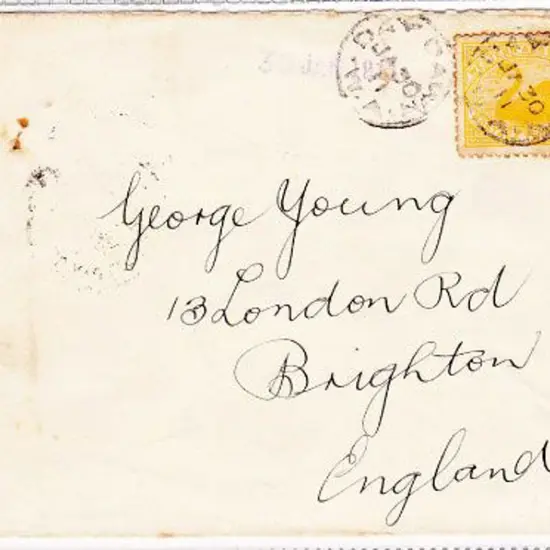 George Young
13 London Rd
Brighton
England